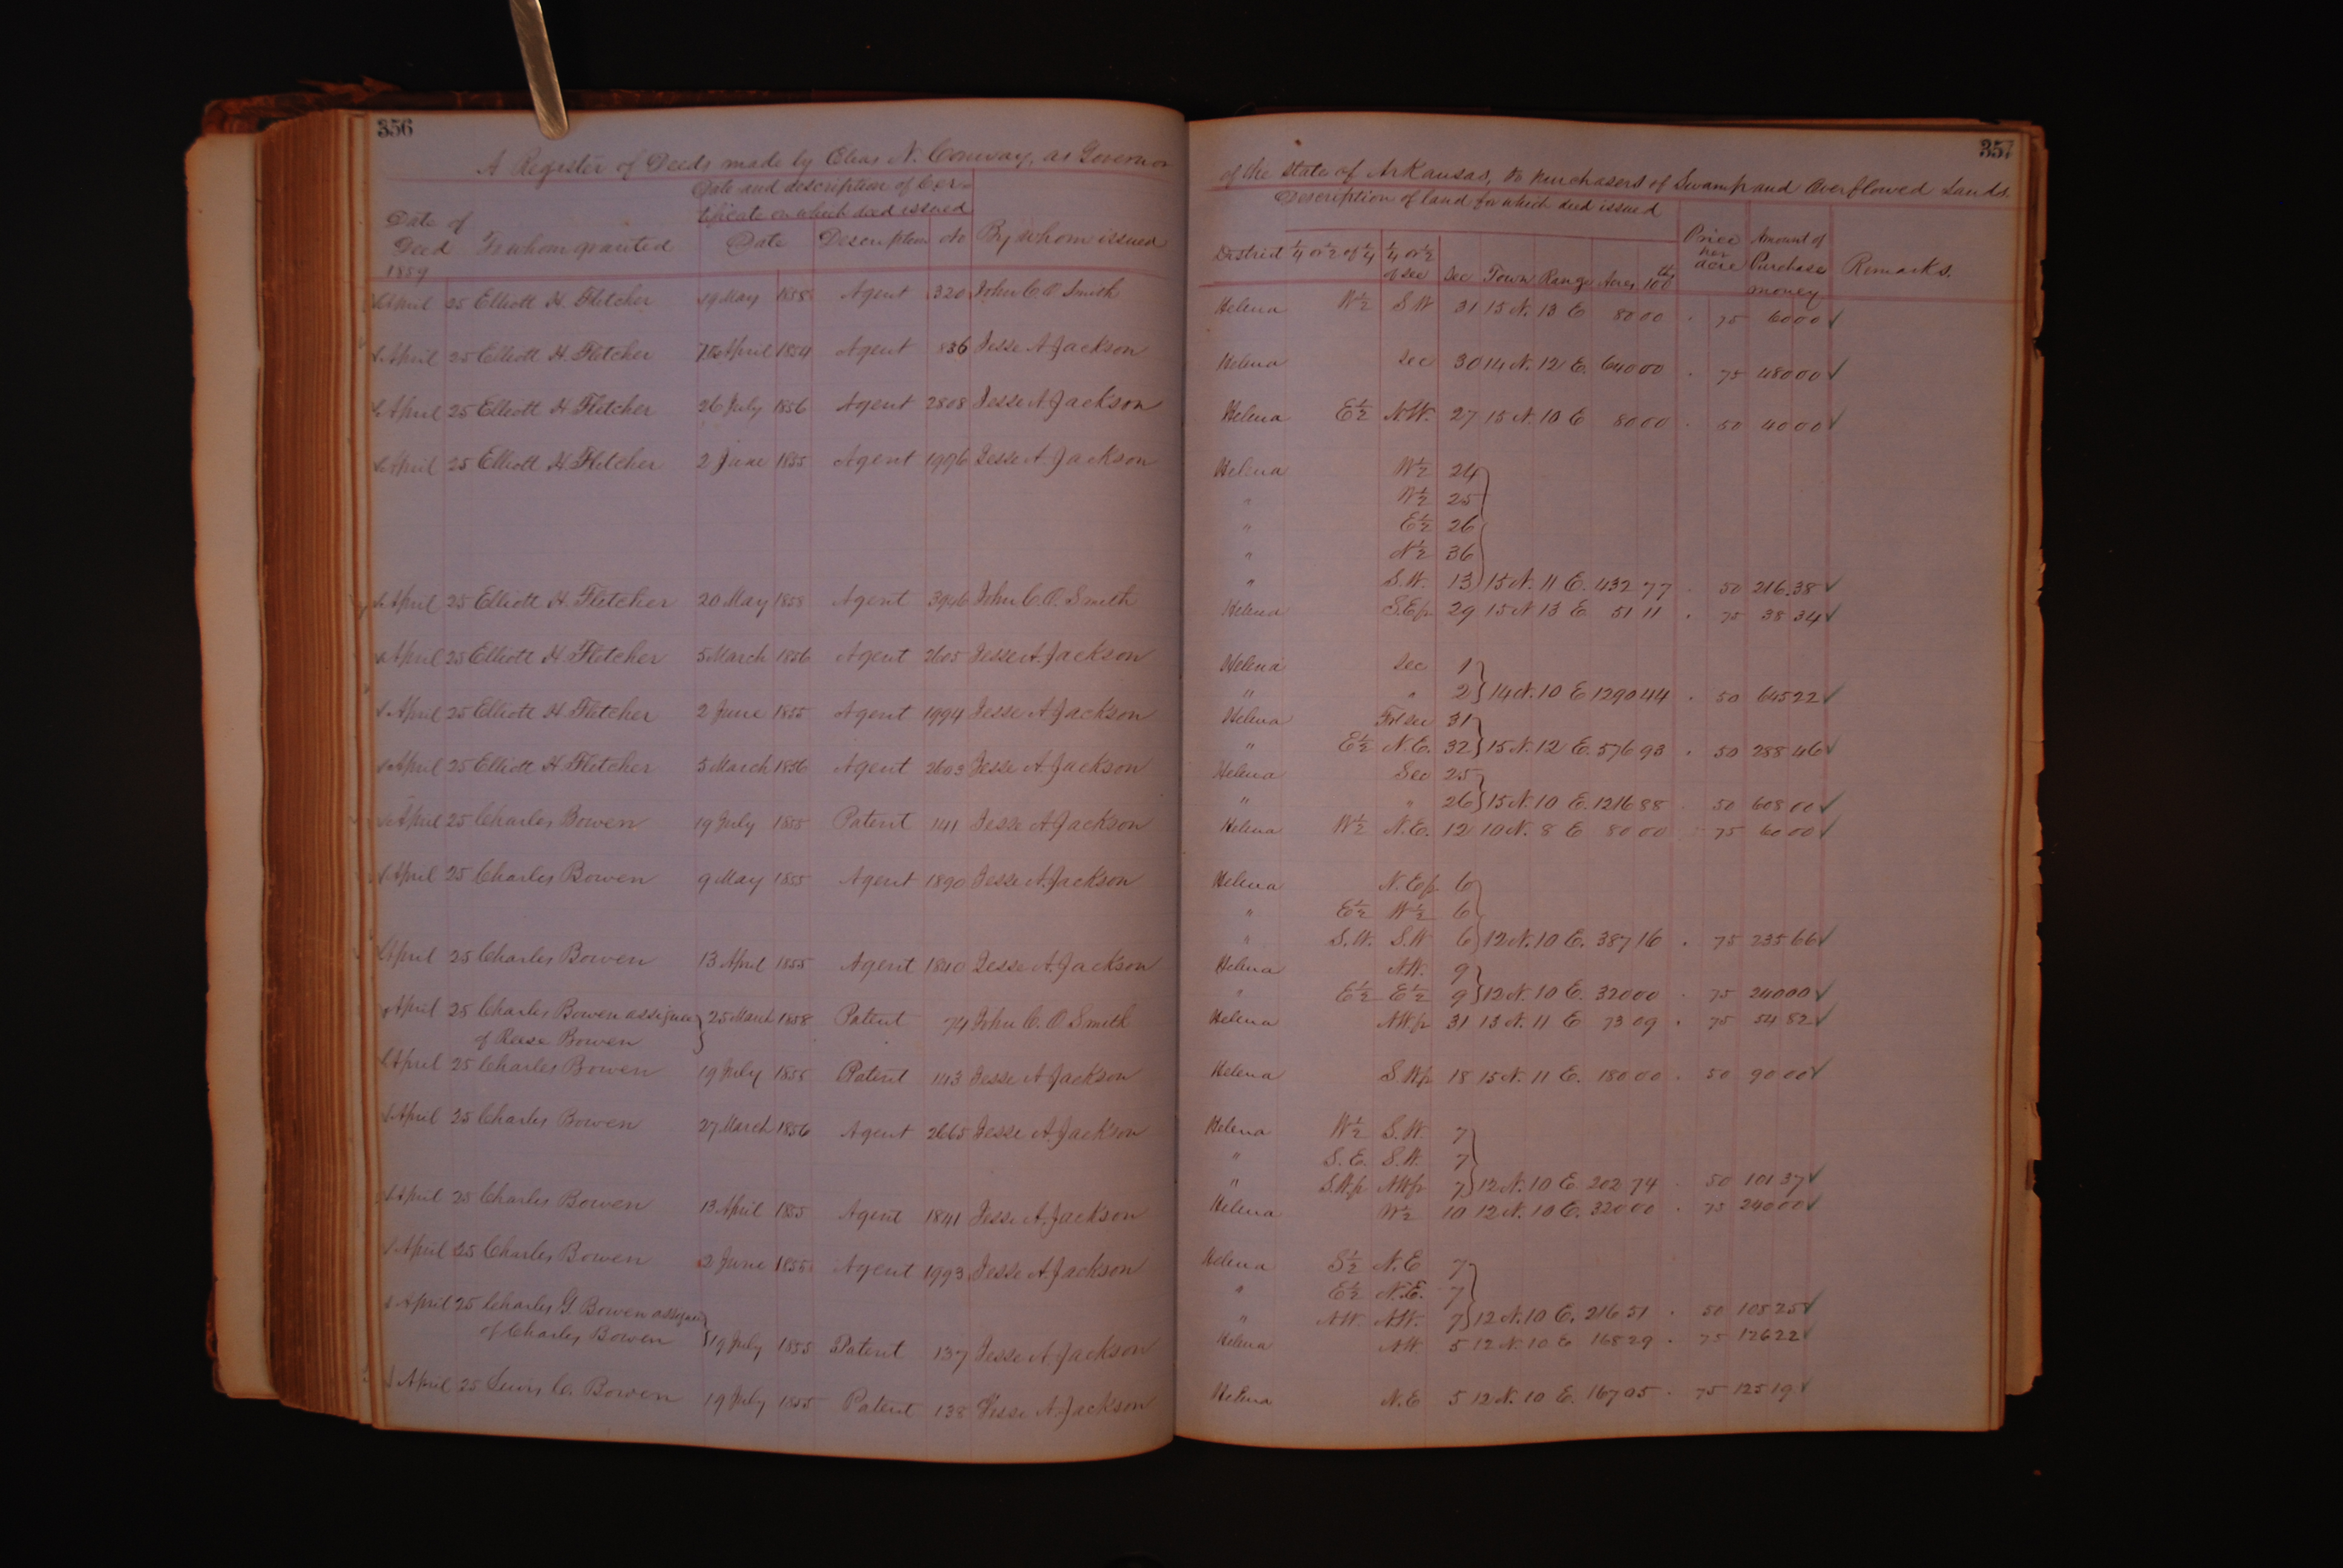 356
A Register of Deeds made by Elias N. Conway, as Governor
Date and description of Cer-
tificate on which deed issued
Date of
Deed To whom granted Date Description No By whom issued
1859
April 25 Elliott H. Fletcher 19 May 1858 Agent 320 John C. O. Smith
April 25 Elliott H. Fletcher April 1854 Agent 836 Jesse A. Jackson
April 25 Elliott H. Fletcher 26 July 1856 Agent 2808 Jesse A. Jackson
April 25 Elliott H. Fletcher 2 June 1855 Agent 1996 Jesse A. Jackson
April 25 Elliott H. Fletcher 20 May 1858 Agent 3946 John C. O. Smith
April 25 Elliott H. Fletcher 5 March 1856 Agent 2605 Jesse A. Jackson
April 25 Elliott H. Fletcher 2 June 1855 Agent 1994 Jesse A. Jackson
April 25 Elliott H. Fletcher 5 March 1856 Agent 2603 Jesse A. Jackson
April 25 Charles Bowen 19 July 1855 Patent 141 Jesse A. Jackson
April 25 Charles Bowen 9 May 1855 Agent 1890 Jesse A. Jackson
April 25 Charles Bowen 13 April 1855 Agent 1840 Jesse A. Jackson
April 25 Charles Bowen assignee } 25 March 1858 Patent 74 John C. O. Smith
of Reese Bowen
April 25 Charles Bowen 19 July 1855 Patent 143 Jesse A. Jackson
April 25 Charles Bowen 27 March 1856 Agent 2665 Jesse A. Jackson
April 25 Charles Bowen 13 April 1855 Agent 1841 Jesse A. Jackson
April 25 Charles Bowen 2 June 1855 Agent 1993 Jesse A. Jackson
April 25 Charles G. Bowen assignee
of Charles Bowen } 19 July 1855 Patent 137 Jesse A. Jackson
April 25 Lewis C. Bowen 19 July 1855 Patent 138 Jesse A. Jackson
357
of the State of Arkansas, to purchasers of Swamp and Overflowed Lands.
Description of land for which deed issued
District ¼ or ½ of ¼ ¼ or ½ of sec Sec Town Range Acres 100ths Price per acre Amount of Purchase money Remarks.
Helena W½ S.W 31 15 N. 13 E 80 00 . 75 60 00 ✓
Helena Sec 30 14 N. 12 E. 640 00 . 75 480 00 ✓
Helena E½ N.W. 27 15 N. 10 E 80 00 . 50 40 00 ✓
Helena W½ 24
" W½ 25
" E½ 26
" N½ 36
" S.W. 13 } 15 N. 11 E. 432 77 . 50 216.38 ✓
Helena S.E.fr 29 15 N 13 E 51 11 . 75 38 34 ✓
Helena Sec 1
" " 2 } 14 N. 10 E 1290 44 . 50 645 22 ✓
Helena Frl sec 31
" E½ N.E. 32 } 15 N. 12 E. 576 93 . 50 288 46 ✓
Helena Sec 25
" " 26 } 15 N. 10 E. 1216 88 . 50 608 00 ✓
Helena W½ N.E. 12 10 N. 8 E 80 00 . 75 60 00 ✓
Helena N.E.fr 6
" E½ W½ 6
" S.W. S.W 6 } 12 N. 10 E. 387 16 . 75 235 66 ✓
Helena N.W. 9
" E½ E½ 9 } 12 N. 10 E. 320 00 . 75 240 00 ✓
Helena N.W.fr 31 13 N. 11 E 73 09 . 75 54 82 ✓
Helena S.W.fr 18 15 N. 11 E. 180 00 . 50 90 00 ✓
Helena W½ S.W. 7
" S.E. S.W. 7
" S.W.fr N.W.fr 7 } 12 N. 10 E. 202 74 . 50 101 37 ✓
Helena W½ 10 12 N. 10 E. 320 00 . 75 240 00 ✓
Helena S½ N.E 7
" E½ N.E. 7
" N.W. N.W. 7 } 12 N. 10 E. 216 51 . 50 108 25 ✓
Helena N.W. 5 12 N. 10 E 168 29 . 75 126 22 ✓
Helena N.E 5 12 N. 10 E. 167 05 . 75 125 19 ✓